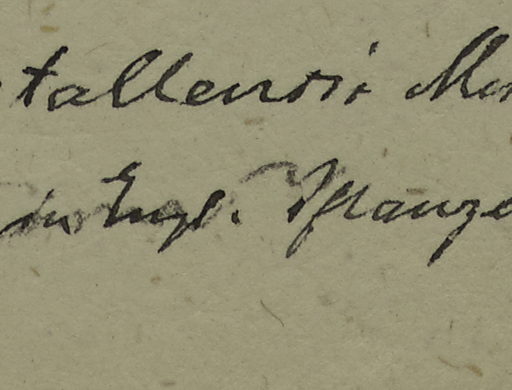 tallensis Mo
in Engl. Pflanze